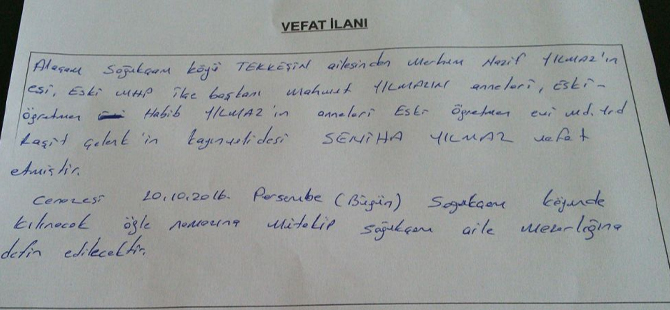 VEFAT İLANI
Alaçam Soğukçam köyü TEKKEŞİN ailesinden Merhum Nazif YILMAZ'ın
eşi, Eski MHP ilçe başkanı Mahmut YILMAZIN anneleri, Eski-
Öğretmen Habib YILMAZ'ın anneleri Eski Öğretmen evi md.
Raşit Çelenk'in kayınvalidesi SENİHA YILMAZ vefat
etmiştir.
Cenazesi 20.10.2016. Perşembe (Bügün) Soğukçam köyünde
kılınacak öğle namazına Mütakip Soğukçam aile Mezarlığına
defin edilecektir.